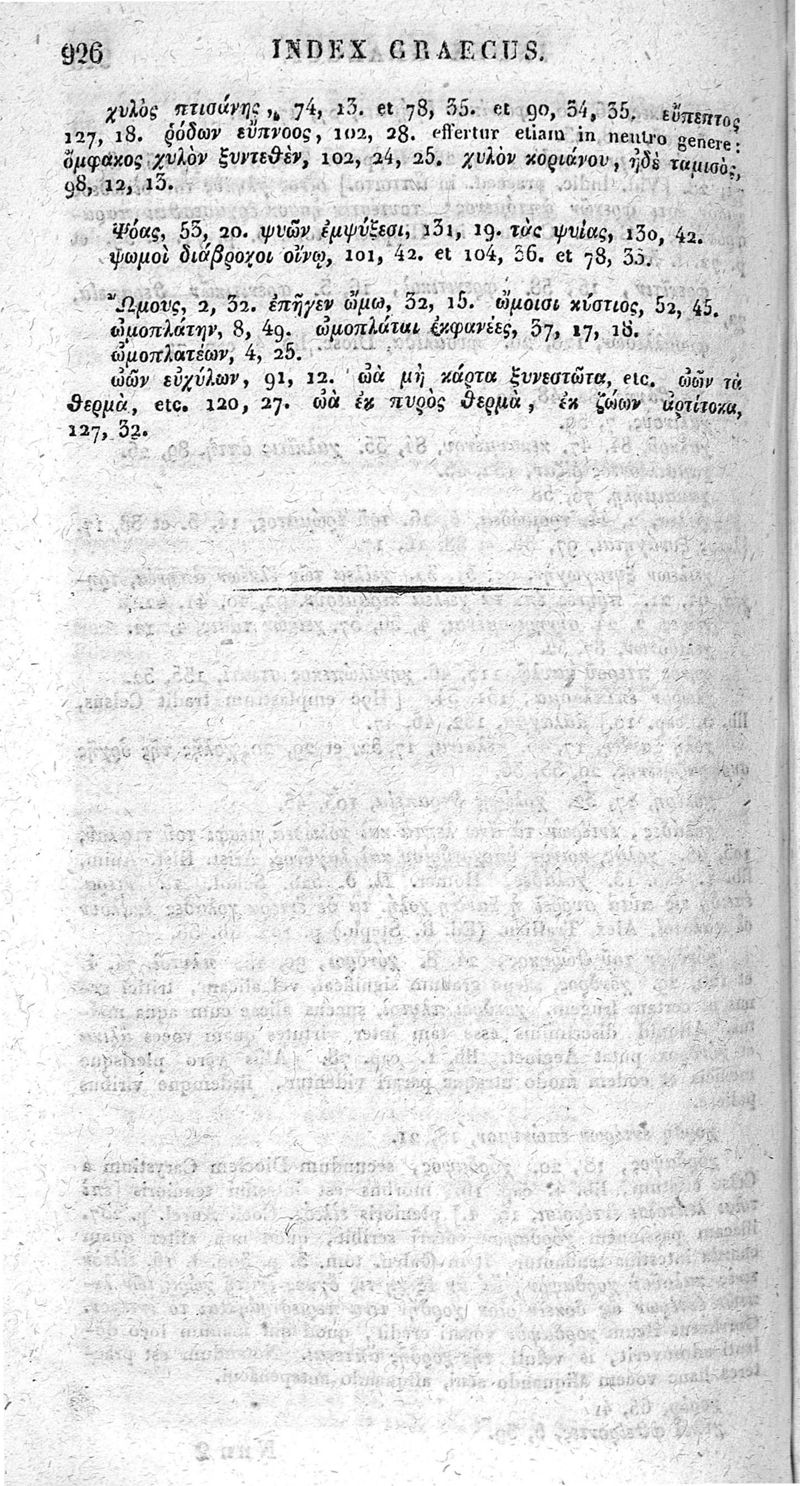 926 INDEX GRAECUS.
χυλὸς πτισάνης, 74, 13. et 78, 35. et 90, 34, 35. εὔπεπτος
127, 18. ῥόδων εὔπνοος, 102, 28. effertur etiam in neutro genere:
ὄμφακος χυλὸν ξυντεθὲν, 102, 24, 25. χυλὸν κοριάνου, ἠδὲ ταμισὸς,
98, 12, 13.
Ψόας, 53, 20. ψυῶν ἐμψύξεσι, 131, 19. τὰς ψυίας, 130, 42.
ψωμοὶ διάβροχοι οἴνῳ, 101, 42. et 104, 36. et 78, 33.
Ὤμους, 2, 32. ἐπῆγεν ὤμω, 32, 15. ὤμοισι κύστιος, 52, 45.
ὠμοπλάτην, 8, 49. ὠμοπλάται ἐκφανέες, 37, 17, 18.
ὠμοπλατέων, 4, 25.
ὠῶν εὐχύλων, 91, 12. ὠὰ μὴ κάρτα ξυνεστῶτα, etc. ὠῶν τὰ
θερμὰ, etc. 120, 27. ὠὰ ἐκ πυρὸς θερμὰ, ἐκ ζώων ἀρτίτοκα,
127, 32.